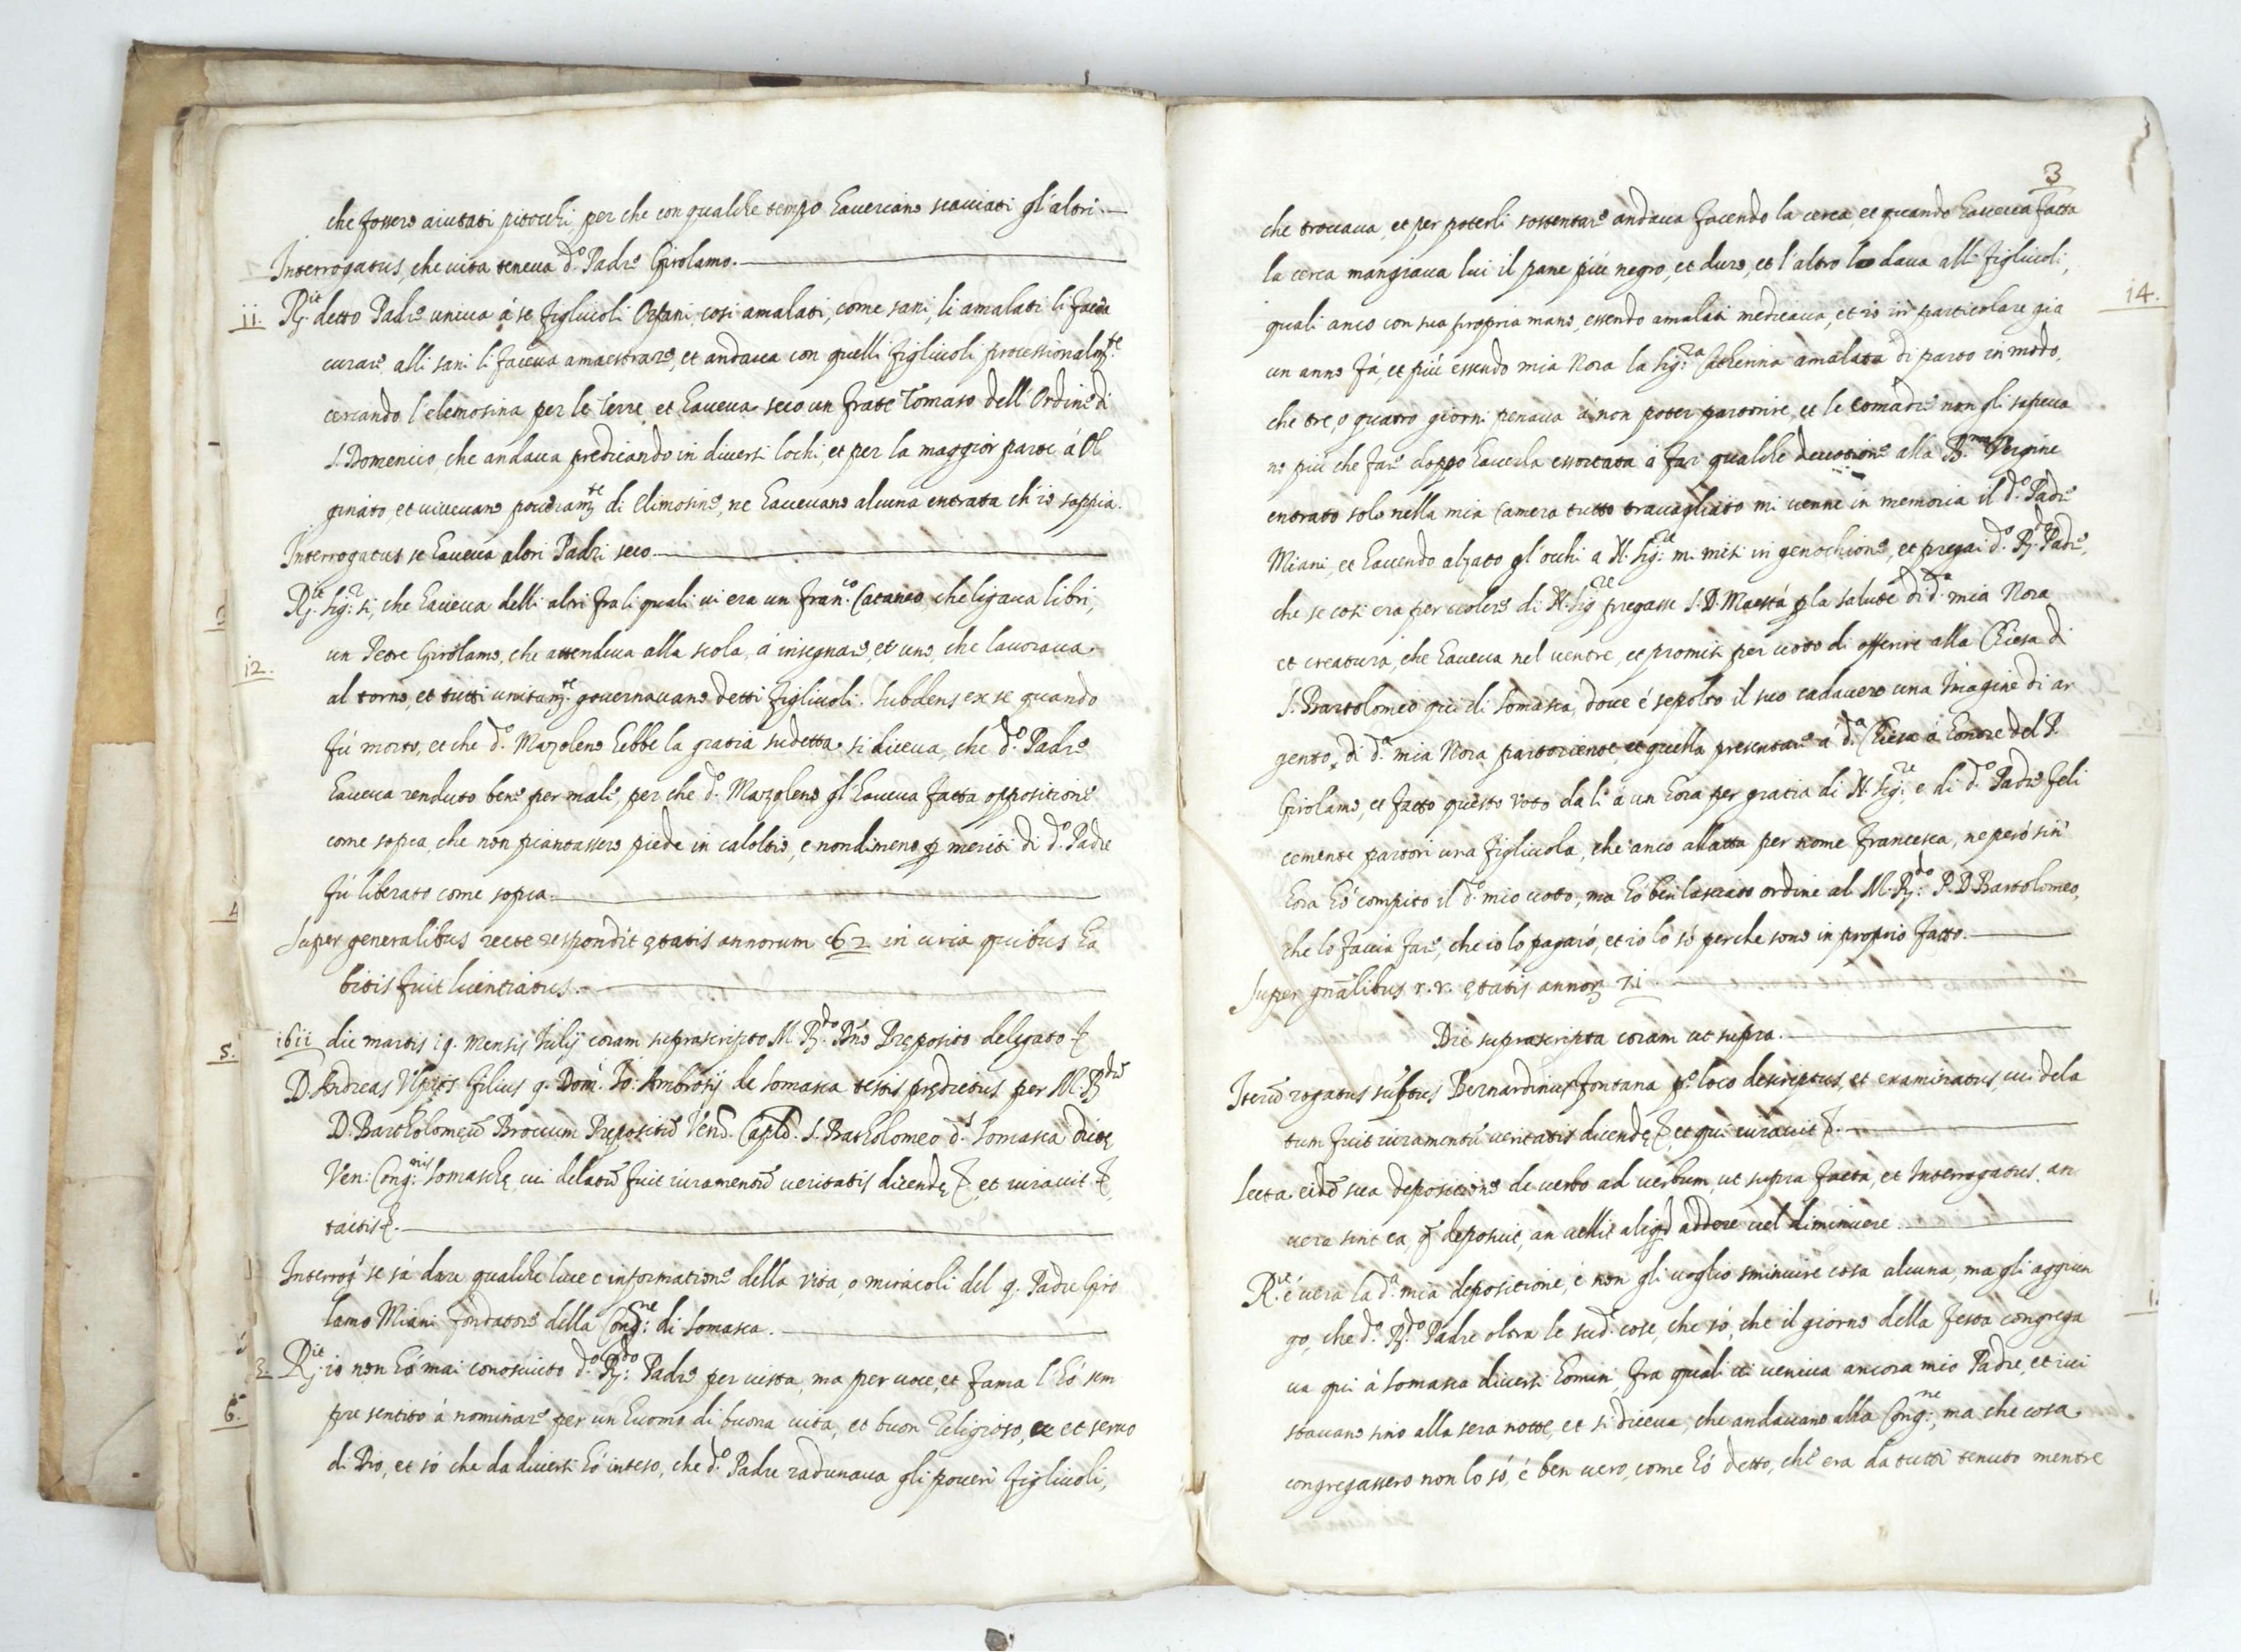 che fossero aiutati pitocchi, per che con qualche tempo haveriano scaciati gl'altri.
Interrogatus, che vita teneva d.o Padre Girolamo.
11. R.it detto Padre univa á se figliuoli Orfani, cosi amalati, come sani, li amalati li faceva
curare, alli sani li faceva amaestrare, et andava con quelli figliuoli processionalm.te
cercando l'elemosina per le Terre, et haveva seco un frate Tomaso dell'Ordine di
S. Domenico che andava predicando in diversi lochi, et per la maggior parte á Ol
ginato, et vivevano poveram.te di elimosine, ne havevano alcuna entrata ch'io sappia.
Interrogatus se haveva altri Padri seco.
R.it Sig.r si, che haveva delli altri fra li quali vi era un Fran.co Cataneo, che ligava libri,
12. un Petre Girolamo, che attendeva alla scola, á insegnare, et uno, che lavorava
al torno, et tutti unitam.te governavano detti figliuoli. Subdens ex se quando
fú morto, et che d.o Mazoleno hebbe la gratia sudetta si diceva, che d.o Padre
haveva renduto bene per male, per che d.o Mazoleno gl'haveva fatta oppositione
come sopra, che non piantassero piede in caloltio, e nondimeno p meriti di d.o Padre
fú liberato come sopra.
Super generalibus recte respondit ętatis annorum 62 in circa quibus ha
bitis fuit licentiatus.
1611 die martis 19. mensis Iulij coram suprascripto M. R.do Dno Pręposito delegato
D. Andreas filius q. Dom. Io: Ambrosij de Somasca testis prędictus per M. R.dum
D. Bartholomęu Brocum Prepositũ Vend. S. Bartholomeo d. Somasca dictę
Ven: Cong.nis Somaschę, cui delatũ fuit iuramentũ veritatis dicendę, et iuravit,
tactis.
Interrog. se sá dare qualche luce e informatione della vita, o miracoli del q. Padre Giro
lamo Miani fondatore della Cong.ne di Somasca.
3. R.it io non hó mai conosciuto d.o R.do Padre per vista, ma per voce, et fama l'hó sem
pre sentito á nominare per un huomo di buona vita, et buon Religioso, et servo
di Dio, et só che da diversi hó inteso, che d.o Padre radunava gli poveri figliuoli,
3
che trovava, et per poterli sostentare andava facendo la cerca, et quando haveva fatta
la cerca mangiava lui il pane piú negro, et duro, et l'altro lo dava alli figliuoli,
14.
quali anco con sua propria mano, essendo amalati medicava, et io in particolare gia
un anno fá, et piú essendo mia Nora la Sig.ra Catherina amalata di parto in modo,
che tre, o quatro giorni penava á non poter partorire, et le comadre non gli sapeva
no piú che fare doppo haverla essortata á far qualche devotione alla B.ma Vergine
entrato solo nella mia Camera tutto travagliato mi venne in memoria il d.o Padre
Miani, et havendo alzato gl'occhi a N. Sig.re mi misi in genochione, et pregai d.o R.do Padre,
che se cosi era per volere di N. Sig.re pregasse S. D. Maestá p la salute di d.a mia Nora
et creatura, che haveva nel ventre, et promisi per voto di offerire alla Chiesa di
S. Bartolomeo qui di Somasca, dove é sepolto il suo cadavero una Imagine di ar
gento, di d.a mia Nora partoriente, et quella presentare a d.a Chiesa á honore del P.
Girolamo, et fatto questo voto da li á un hora per gratia di N. Sig.re e di d.o Padre feli
cemente partorí una figliuola, che anco allatta per nome Francesca, ne peró sin'
hora hó compito il d.o mio voto, ma hó ben lasciato ordine al M. R.do P. D. Bartolomeo,
che lo faccia fare, che io lo pagaró, et io lo só perche sono in proprio fatto.
Super gnalibus r. r. ętatis annor 71.
Die suprascripta coram ut supra.
Iterũ rogatus Bernardinus Fontana p.o loco descriptus, et examinatus, cui dela
tum fuit iuramentũ veritatis dicendę, et qui iuravit.
Lecta eidẽ sua depositione de verbo ad verbum, ut supra facta, et Interrogatus, an
vera sint ea, q deposuit, an vellit aliqd addere vel diminuere.
R.it é vera la d.a mia depositione, é non gli voglio sminuire cosa alcuna, ma gli aggiun
go, che d.o R.do Padre oltra le sud.e cose, che só, che il giorno della festa congrega
va qui á Somasca diversi homini, fra quali vi veniva ancora mio Padre, et ivi
stavano sino alla sera notte, et si diceva, che andavano alla Cong.ne, ma che cosa
congregassero non lo só, é ben vero, come hó detto, che era da tutti tenuto mentre